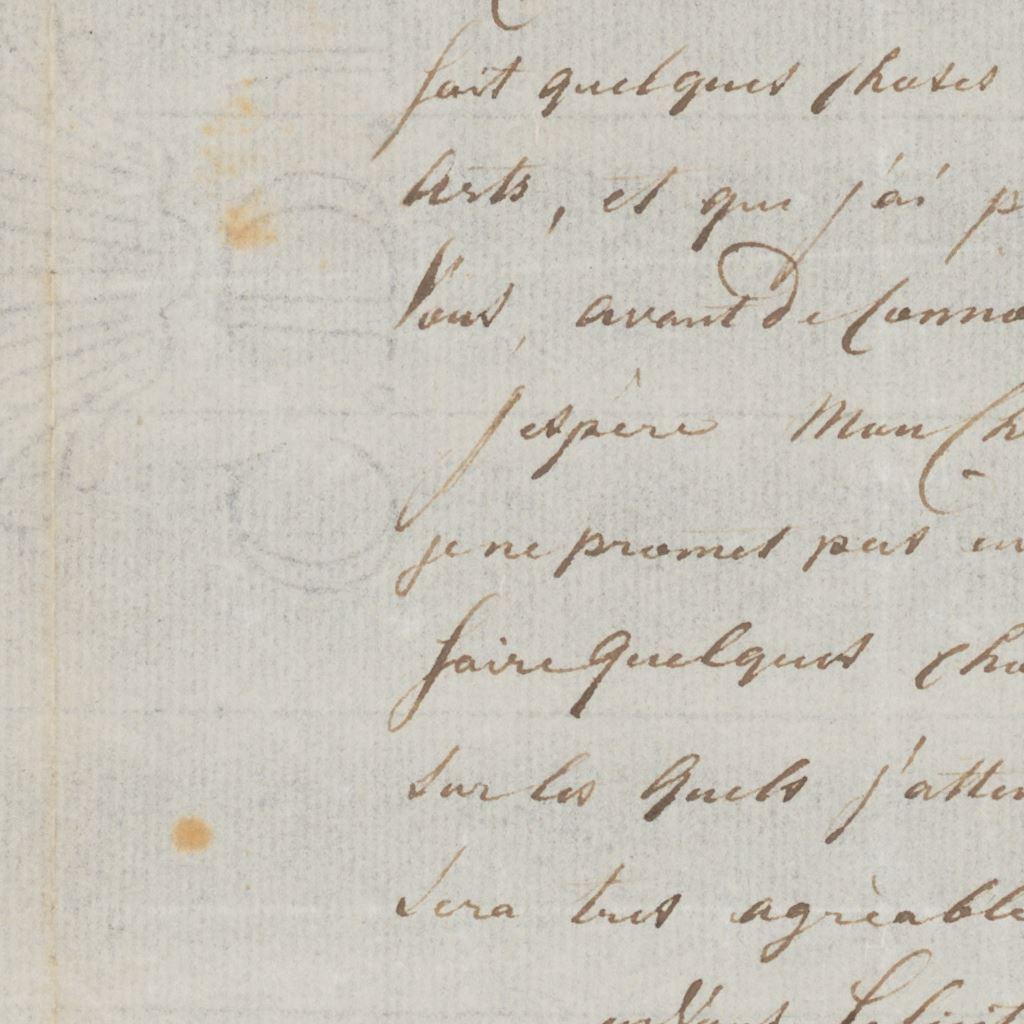 fait quelques choses
Arts, et que j'ai p
Vous, avant de Conno
j'espère Mon Ch
je ne promet pas en
faire quelques cho
sur les quels j'atten
sera tres agrèable
Vous